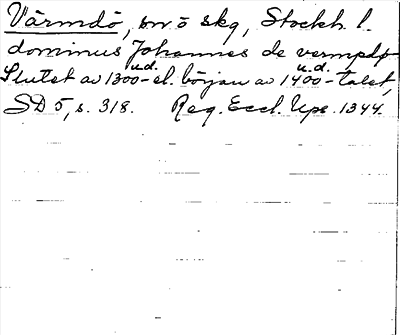 Värmdö, sn ö skg, Stockh. l.
dominus Johannes de vermpdø
u.d. u.d.
Slutet av 1300- el. början av 1400-talet,
SD 5, s. 318. Reg. Eccl. Ups. 1344.